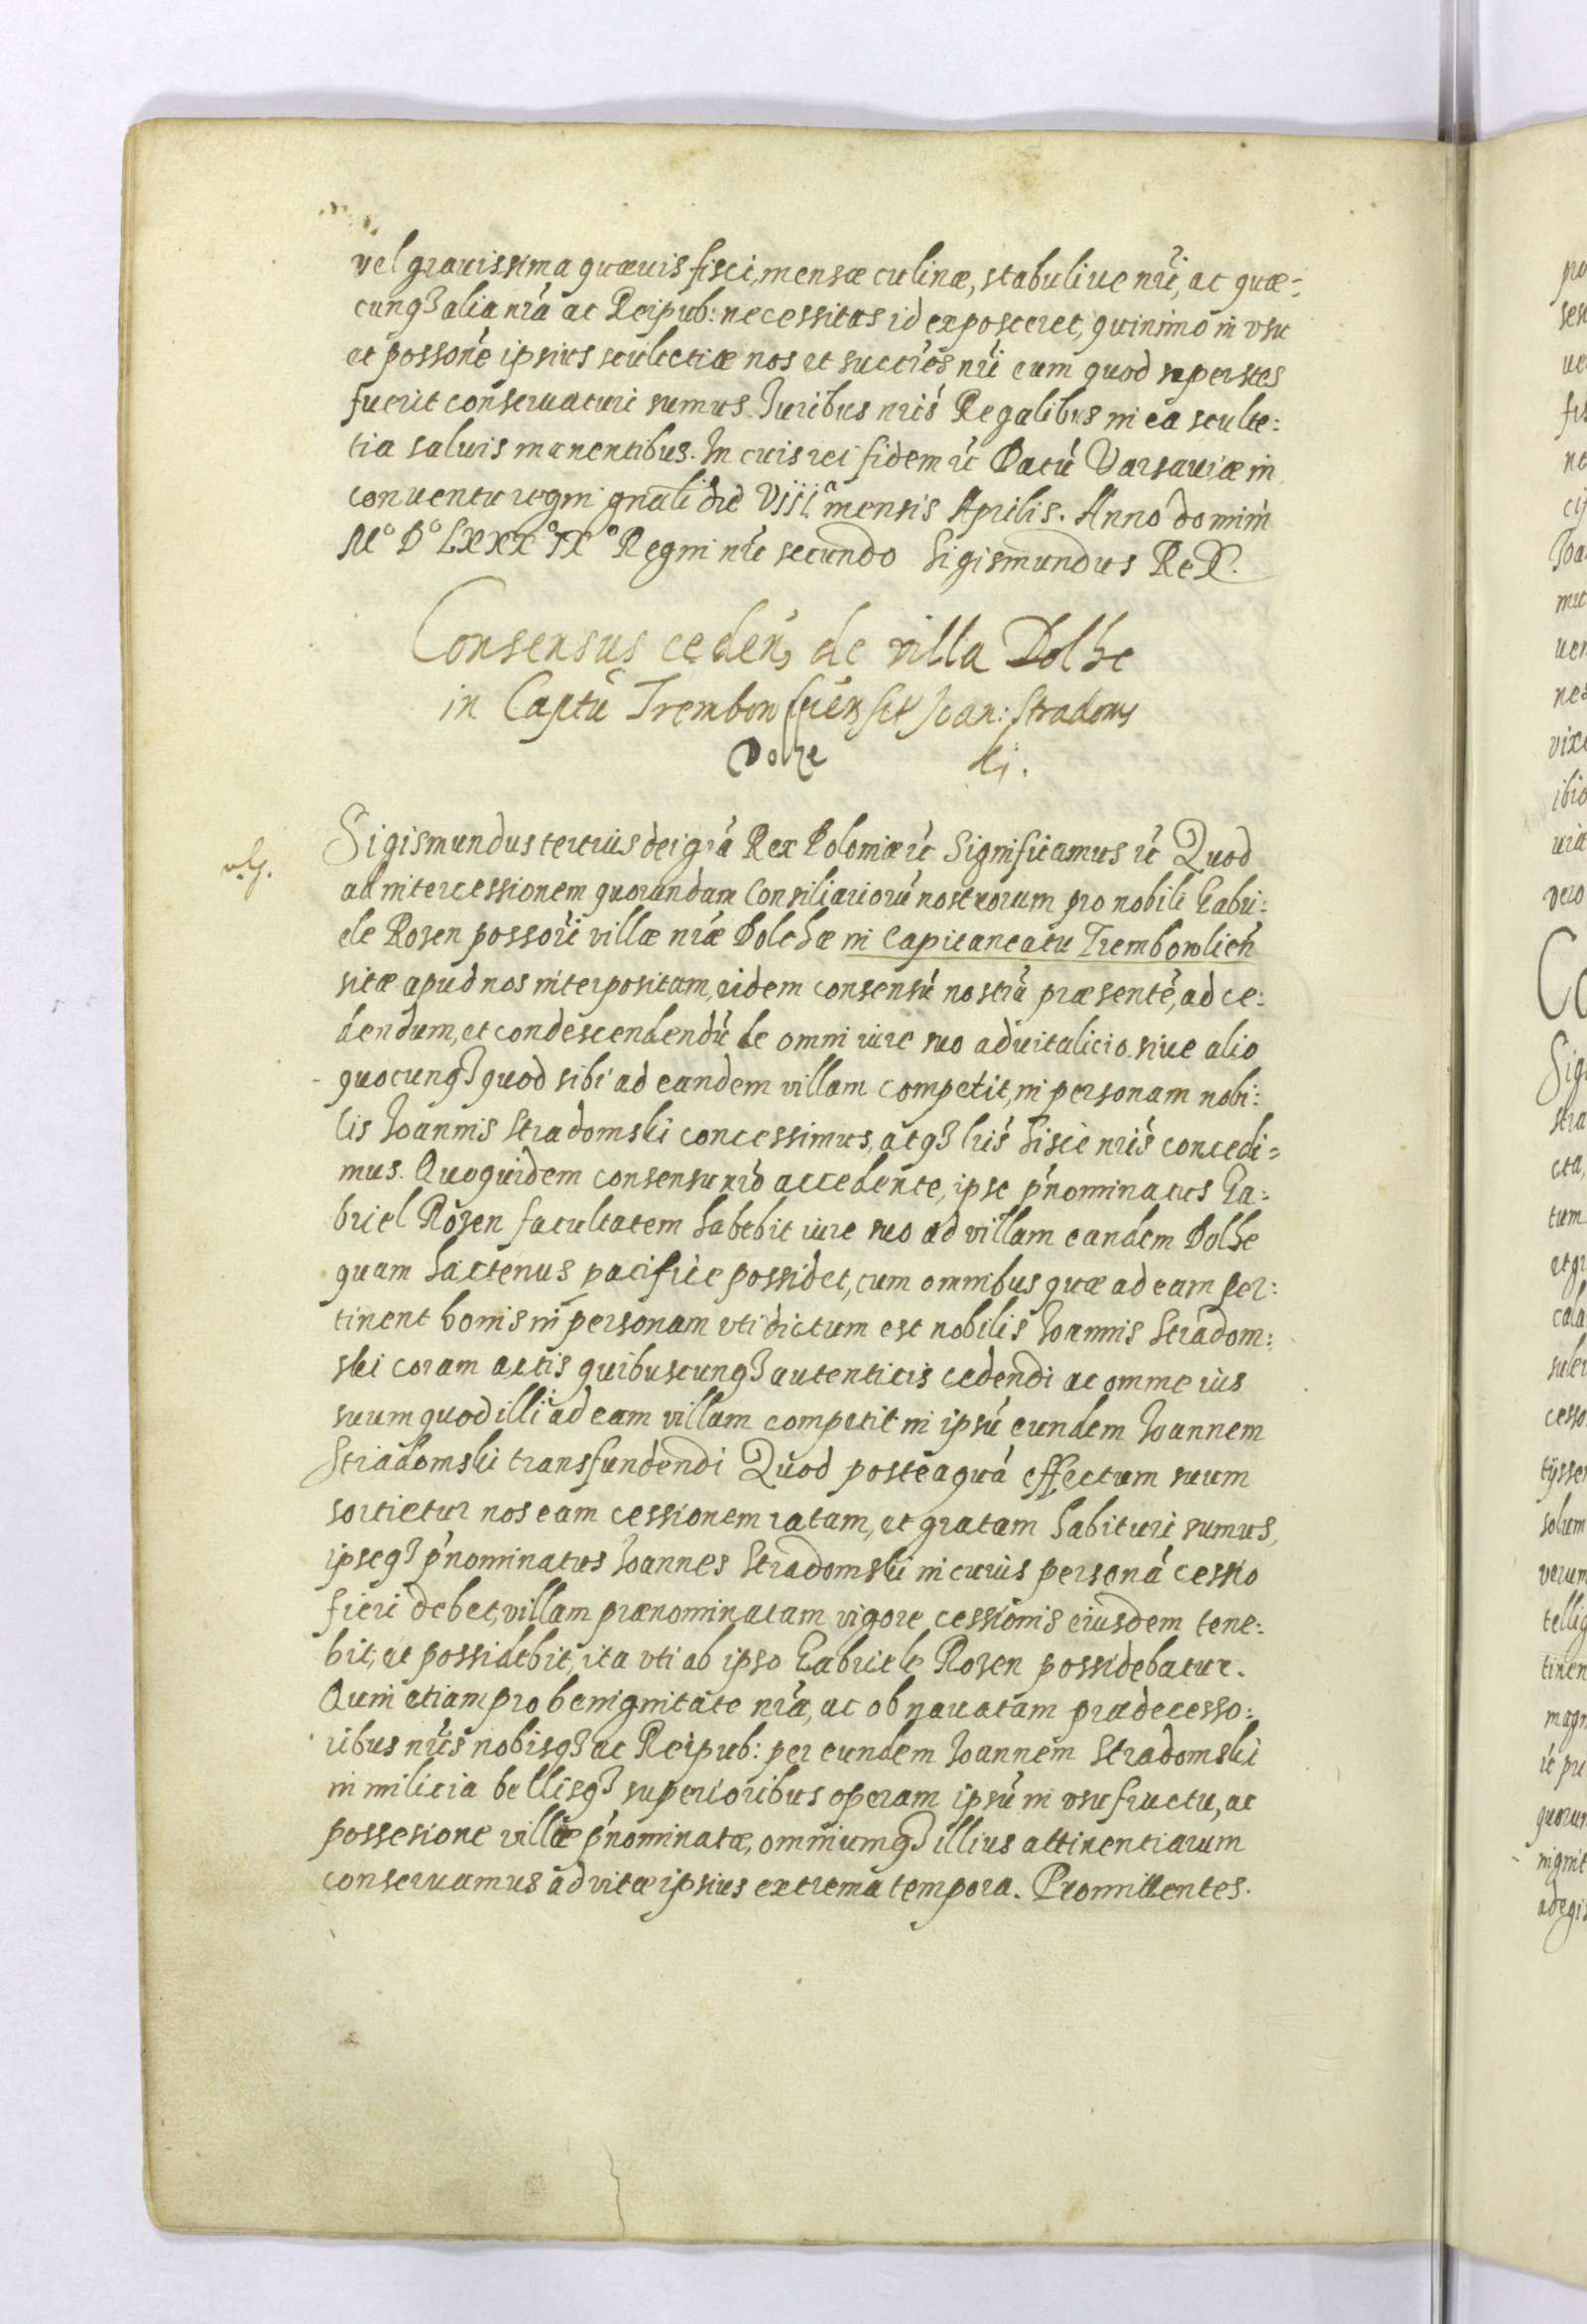 vel grauissima quæuis fisci, mensæ culinæ, stabuliue nr̃i, ac quæ-
cunq3 alia nr̃a ac Reipub: necessitas id exposceret, quinimo in vsu
et possone ipsius scultetiæ nos et succr̃es nr̃i eum quod superstes
fuerit conseruaturi sumus. Iuribus nr̃is Regalibus in ea sculte:
tia saluis manentibus. In cuius rei fidem r̃c Datũ Varsauiæ in
conuentu regni gnali die VIII.a mensis Aprilis. Anno domini
Mo Do LXXXo IXo Regni nr̃i secundo Sigismundus Rex.
Consensus ceden, de villa Dolhe
in Captũ Trembowlien sit Ioan: Stradoms
Dolhe ki.
Sigismundus tertius dei gr̃a Rex Poloniæ r̃c Significamus r̃c Quod
ad intercessionem quorundam Consiliariorũ nostrorum pro nobili Gabri:
ele Rozen possori villæ nr̃æ Dolhæ in Capitaneatu Trembowlien
sitæ apud nos interpositam, eidem consensũ nostrũ præsentẽ, ad ce:
dendum, et condescendendũ de omni iure suo aduitalicio siue alio
quocunq3 quod sibi ad eandem villam competit, in personam nobi:
lis Ioannis Stradomski concessimus, atq3 lr̃is hisce nr̃is concedi=
mus. Quoquidem consensu nr̃o accedente, ipse p̃nominatus Ga:
briel Rozen facultatem habebit iure suo ad villam eandem Dolhe
quam hactenus pacifice possidet, cum omnibus quæ ad eam per:
tinent bonis in personam vti dictum est nobilis Ioannis Stradom:
ski coram actis quibuscunq3 autenticis cedendi ac omne ius
suum quod illi ad eam villam competit in ipsũ eundem Ioannem
Stradomski transfundendi Quod posteaquã effectum suum
sortietur nos eam cessionem ratam, et gratam habituri sumus,
ipseq3 p̃nominatus Ioannes Stradomski in cuius personã cessio
fieri debet, villam prænominatam vigore cessionis eiusdem tene:
bit, et possidebit, ita vti ab ipso Gabriele Rozen possidebatur.
Quin etiam pro benignitate nr̃a, ac ob nauatam prædecesso:
ribus nr̃is nobisq3 ac Reipub: per eundem Ioannem Stradomski
in milicia bellisq3 superioribus operam ipsũ in vsufructu, ac
possesione villæ p̃nominatæ, omniumq3 illius attinentiarum
conseruamus ad vitæ ipsius extrema tempora. Promittentes.